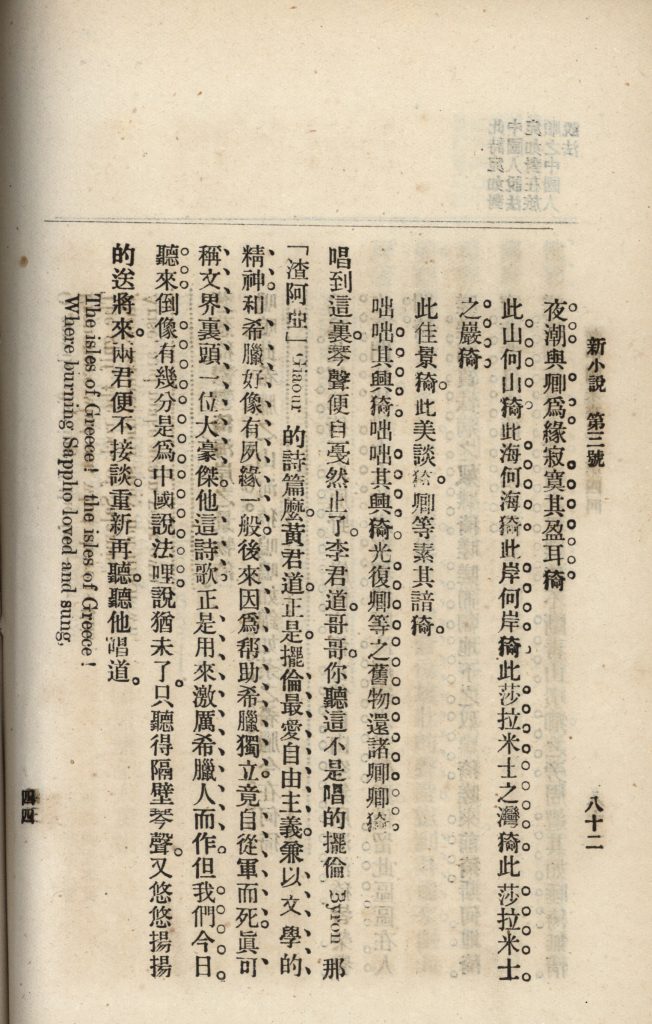 新小說　第三號
八十二
夜潮與卿爲緣寂寞其盈耳猗
此山何山猗此海何海猗此岸何岸猗此莎拉米士之灣猗此莎拉米士
之巖猗
此佳景猗此美談猗卿等素其諳猗
咄咄其興猗咄咄其興猗光復卿等之舊物還諸卿卿猗
唱到這裏琴聲便自戞然止了李君道哥哥你聽這不是唱的擺倫 Byron 那
「渣阿亞」Giaour 的詩篇麽黃君道正是擺倫最愛自由主義兼以文學的
精神和希臘好像有夙緣一般後來因爲幫助希臘獨立竟自從軍而死眞可
稱文界裏頭一位大豪傑他這詩歌正是用來激厲希臘人而作但我們今日
聽來倒像有幾分是爲中國說法哩說猶未了只聽得隔壁琴聲又悠悠揚揚
的送將來兩君便不接談重新再聽聽他唱道
The isles of Greece! the isles of Greece!
Where burning Sappho loved and sung,
四四